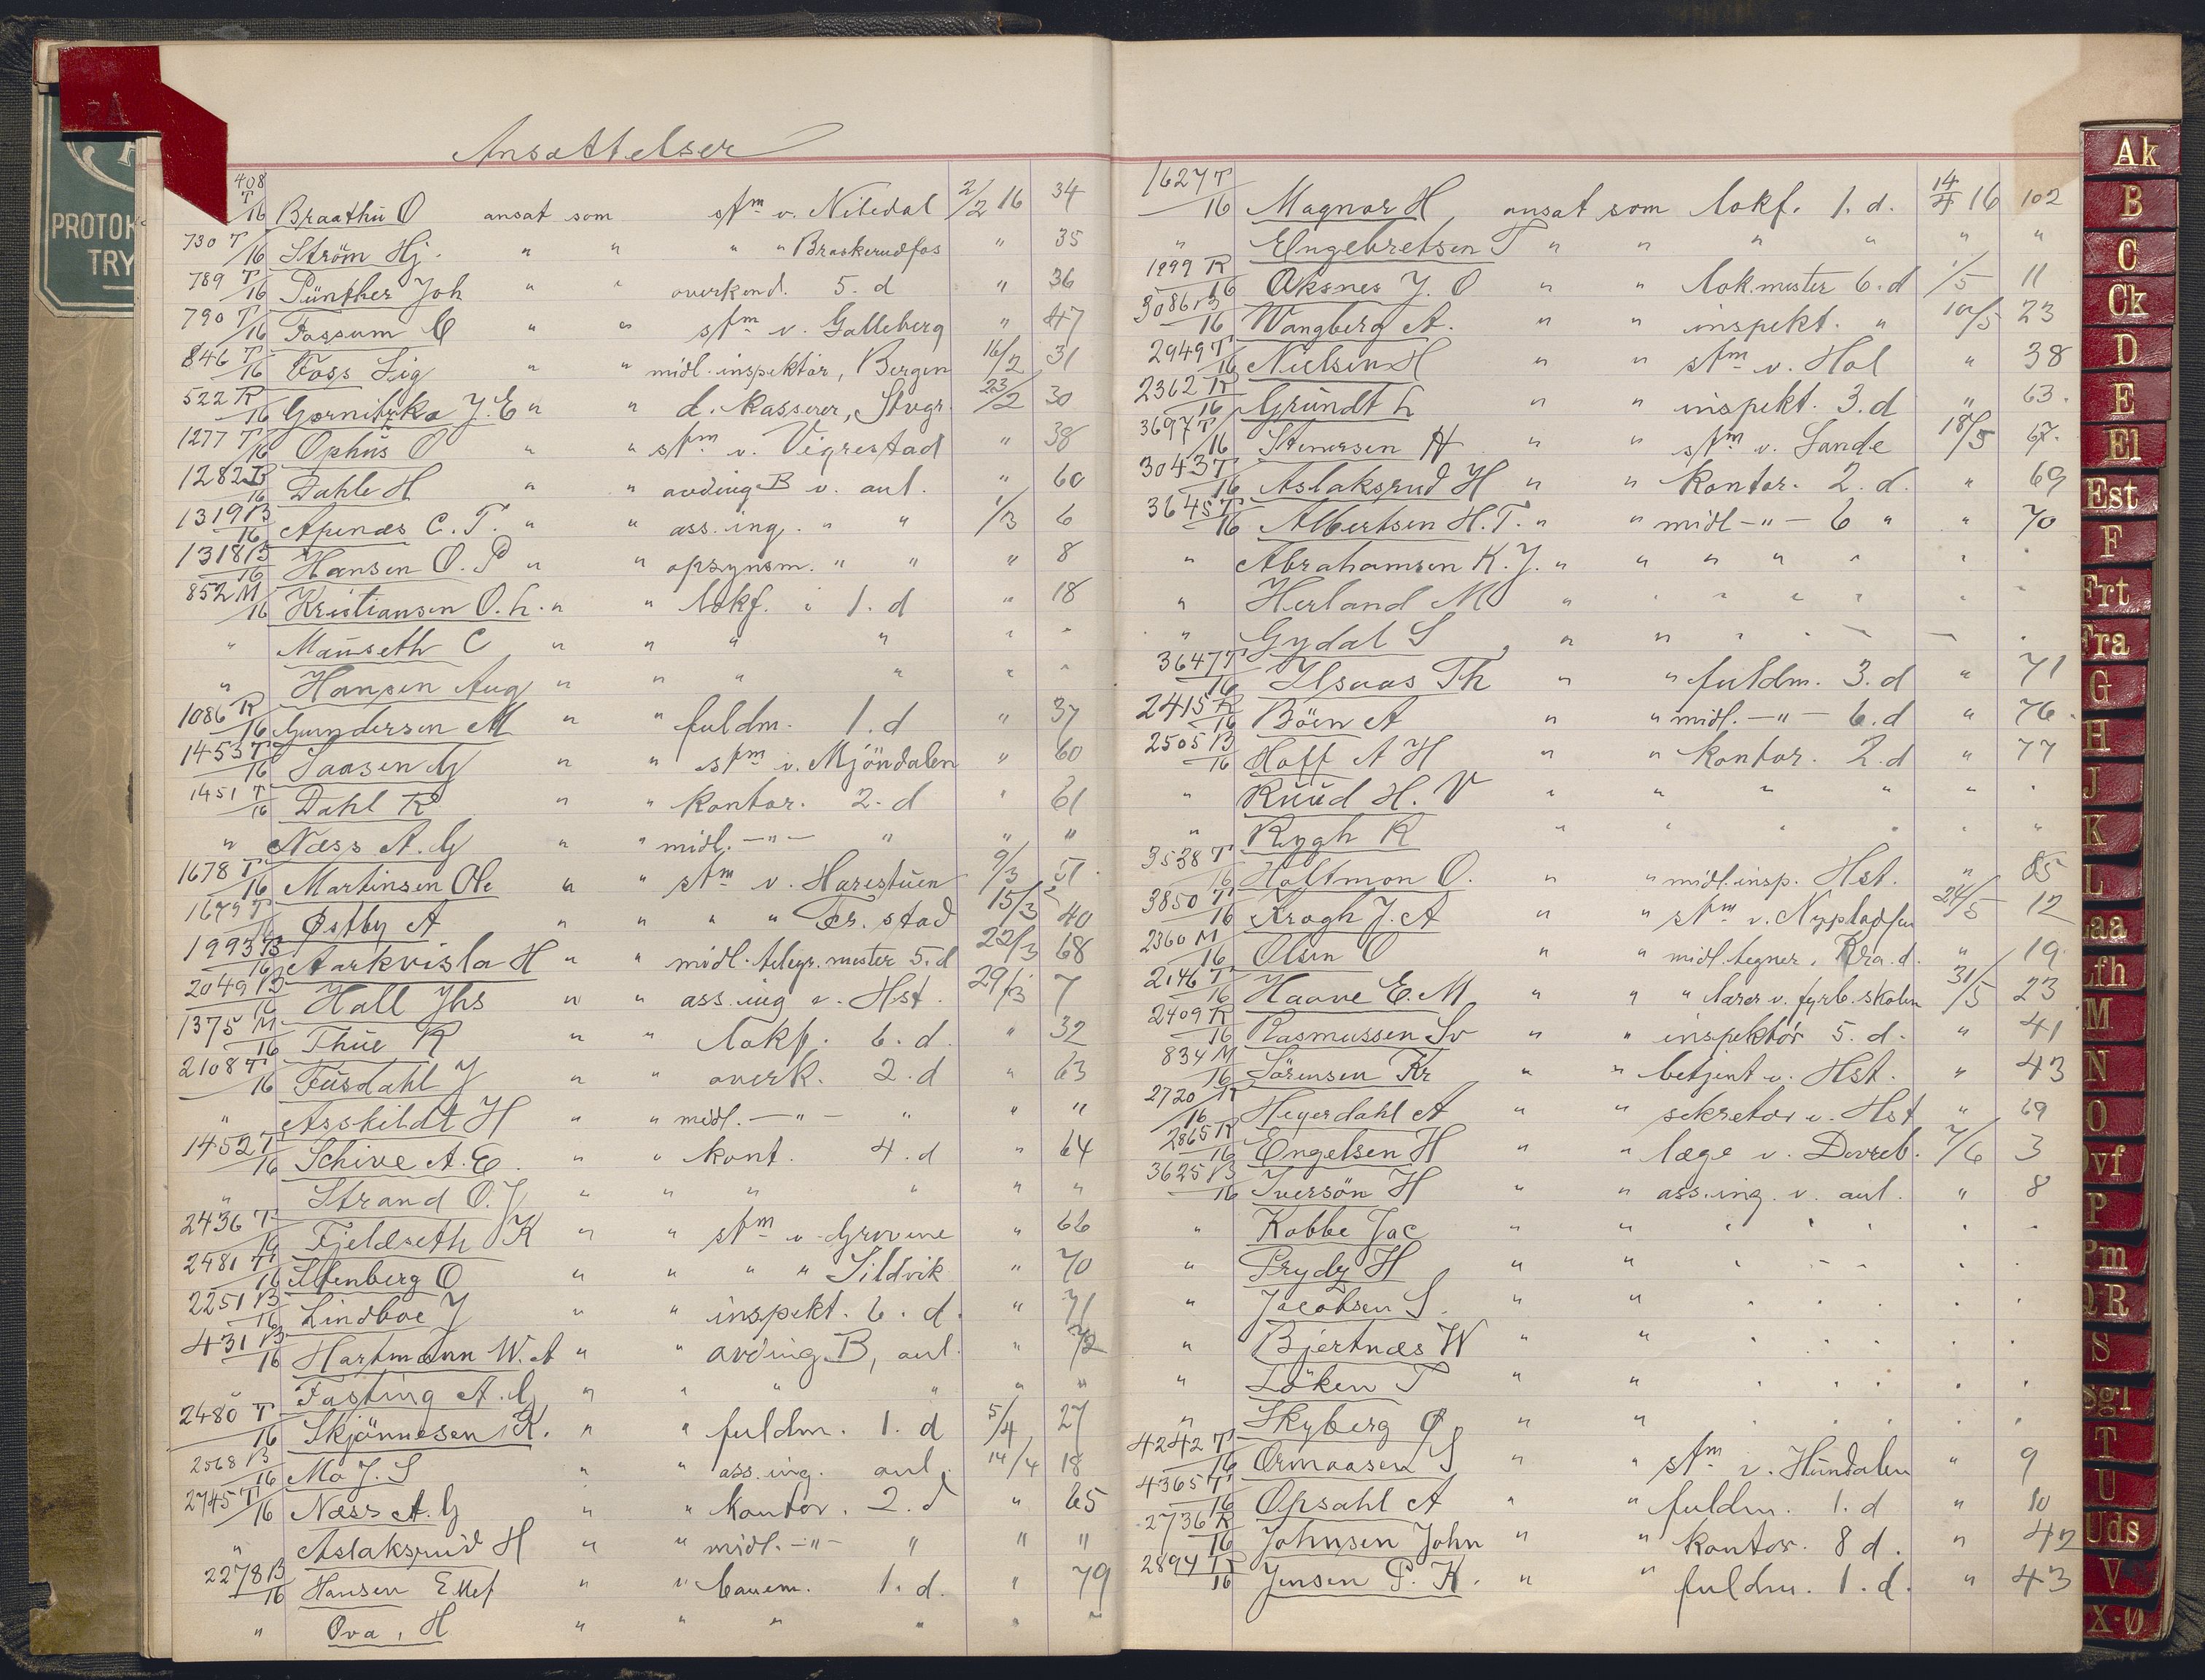 Ansættelser
408 T/16 Braathu O ansat som stm v. Nitedal 2/2 16 34
730 T/16 Ström Hj. " " " " Braskerudfos " 35
789 T/16 Günther Joh " " overkond. 5. d " 36
790 T/16 Fossum C " " stm v. Galleberg " 47
846 T/16 Foss Sig " " midl. inspektør, Bergen 16/2 31
522 R/16 Gornitzka J. E " " d. kasserer, Stvgr. 23/2 30
1277 T/16 Ophus O " " stm v. Vigrestad " 38
1282 B/16 Dahle H " " avding B v. anl. " 60
1319 B/16 Apenæs C. T. " " ass. ing. " " 1/3 6
1318 B/16 Hansen O. P " " opsynsm. " " " 8
852 M/16 Kristiansen O. L. " " lokf. i 1. d " 18
" Mauseth C " " " " " "
" Hansen Aug " " " " " "
1086 R/16 Gundersen M " " fuldm. 1. d " 37
1453 T/16 Saasen G " " stm v. Mjöndalen " 60
1451 T/16 Dahl R " " kontor. 2. d " 61
" Næss A. G " " midl. -"- " " "
1678 T/16 Martinsen Ole " " stm v. Harestuen 9/3 51
1679 T/16 Østby A " " " " Fr. stad 15/3 40
1993 B/16 Aarkvisla H " " midl. telegr. mester 5. d 22/3 68
2049 B/16 Hall Jhs " " ass. ing v. Hst. 29/3 7
1375 M/16 Thue R " " lokf. 6. d. " 32
2108 T/16 Fusdahl J " " overk. 2. d " 63
" Asskildt H " " midl. -"- " " "
1452 T/16 Schive A. E. " " kont. 4. d " 64
" Strand O. J " " " " " "
2436 T/16 Fjeldseth K " " stm v. Grovene " 66
2481 T/16 Altenberg O " " " " Sildvik " 70
2251 B/16 Lindboe J " " inspekt. 6. d. " 71
431 B/16 Hartmann W. A " " avding B, anl. " 72
" Fasting A. G " " " " " "
2480 T/16 Skjönnesen K. " " fuldm. 1. d 5/4 27
2568 B/16 Mo J. S " " ass. ing. anl. 14/4 18
2745 T/16 Næss A. G " " kontor. 2. d " 65
" Aslaksrud H " " midl. -"- " " "
2278 B/16 Hansen Ellef " " banem. 1. d. " 79
" Ova, H " " " " " "
1627 T/16 Magnor H, ansat som lokf. 1. d. 14/4 16 102
" Engebretsen T " " " " " "
1999 R/16 Oksnes J. O " " lok.mester 6. d 1/5 11
3086 B/16 Wangberg A. " " inspekt. " 10/5 23
2949 T/16 Nielsen H " " stm v. Hol " 38
2362 R/16 Gründt L " " inspekt. 3. d " 63.
3697 T/16 Stenersen H " " stm v. Sande 18/5 67.
3043 T/16 Aslaksrud H " " kontor. 2. d. " 69
3645 T/16 Albertsen H. T. " " midl -"- 6 " " 70
" Abrahamsen K. J. " " " " " " "
" Herland M " " " " " " "
" Gydal S " " " " " " "
3647 T/16 Ilsaas Th " " fuldm. 3. d " 71
2415 R/16 Böen A " " midl. -"- 6. d " 76.
2505 B/16 Hoff A H " " kontor. 2. d " 77
" Ruud H. V " " " " " "
" Rygh R " " " " " "
3538 T/16 Holtmon O. " " midl. insp. Hst. " 85
3850 T/16 Krogh J. A " " stm v. Nypladsen 24/5 12
2360 M/16 Olsen O " " midl. tegner, Kra. d. " 19
2146 T/16 Haave E. M " " " lærer v. fyrb. skolen 31/5 23
2409 R/16 Rasmussen Sv " " inspektör 5. d. " 41
834 M/16 Sörensen Kr " " betjent v. Hst. " 43
2720 R/16 Heyerdahl A " " sekretær v. Hst " 69
2865 R/16 Engelsen H " " læge v. Dovreb. 7/6 3
3625 B/16 Iversön H " " ass. ing. v. anl. " 8
" Kobbe Jac " " " " " " "
" Prydz H " " " " " " "
" Jacobsen S. " " " " " " "
" Bjertnæs W " " " " " " "
" Löken T " " " " " " "
" Skyberg O " " " " " " "
4242 T/16 Ormaasen S " " stm v. Hundalen " 9
4365 T/16 Opsahl A " " fuldm. 1. d " 10
2736 R/16 Johnsen John " " kontor. 8 d. " 42
2894 R/16 Jensen P. K. " " fuldm. 1. d. " 43
PROTOK
TRY
Ak
B
C
Ck
D
E
El
Est
F
Frt
Fra
G
H
J
K
L
Laa
Lfh
M
N
O
Ovf
P
Pm
QR
S
Sgl
T
U
Uds
V
X-Ø